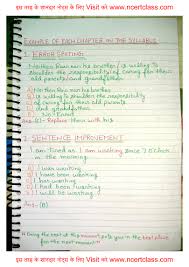 इस तरह के शानदार नोट्स के लिए Visit करे www.ncertclass.com
EXAMPLE OF EACH CHAPTER IN THE SYLLABUS
1. ERROR SPOTTING:
Neither Ram nor his brother is willing to
shoulder the responsibility of caring for their
old parents and grandfather.
A) Neither Ram nor his brother
B) is willing to shoulder the responsibility
C) of caring for their old parents
and grandfather
D) No Error
Ans: (C) - Replace them with his
2. SENTENCE IMPROVEMENT
I am tired as I am working since 7 O'clock
in the morning
A) I was working
B) I have been working
C) I had been working
D) I will be working
Ans: (B)
"Doing the best at this moment puts you in the best place
for the next moment"
इस तरह के शानदार नोट्स के लिए Visit करे www.ncertclass.com